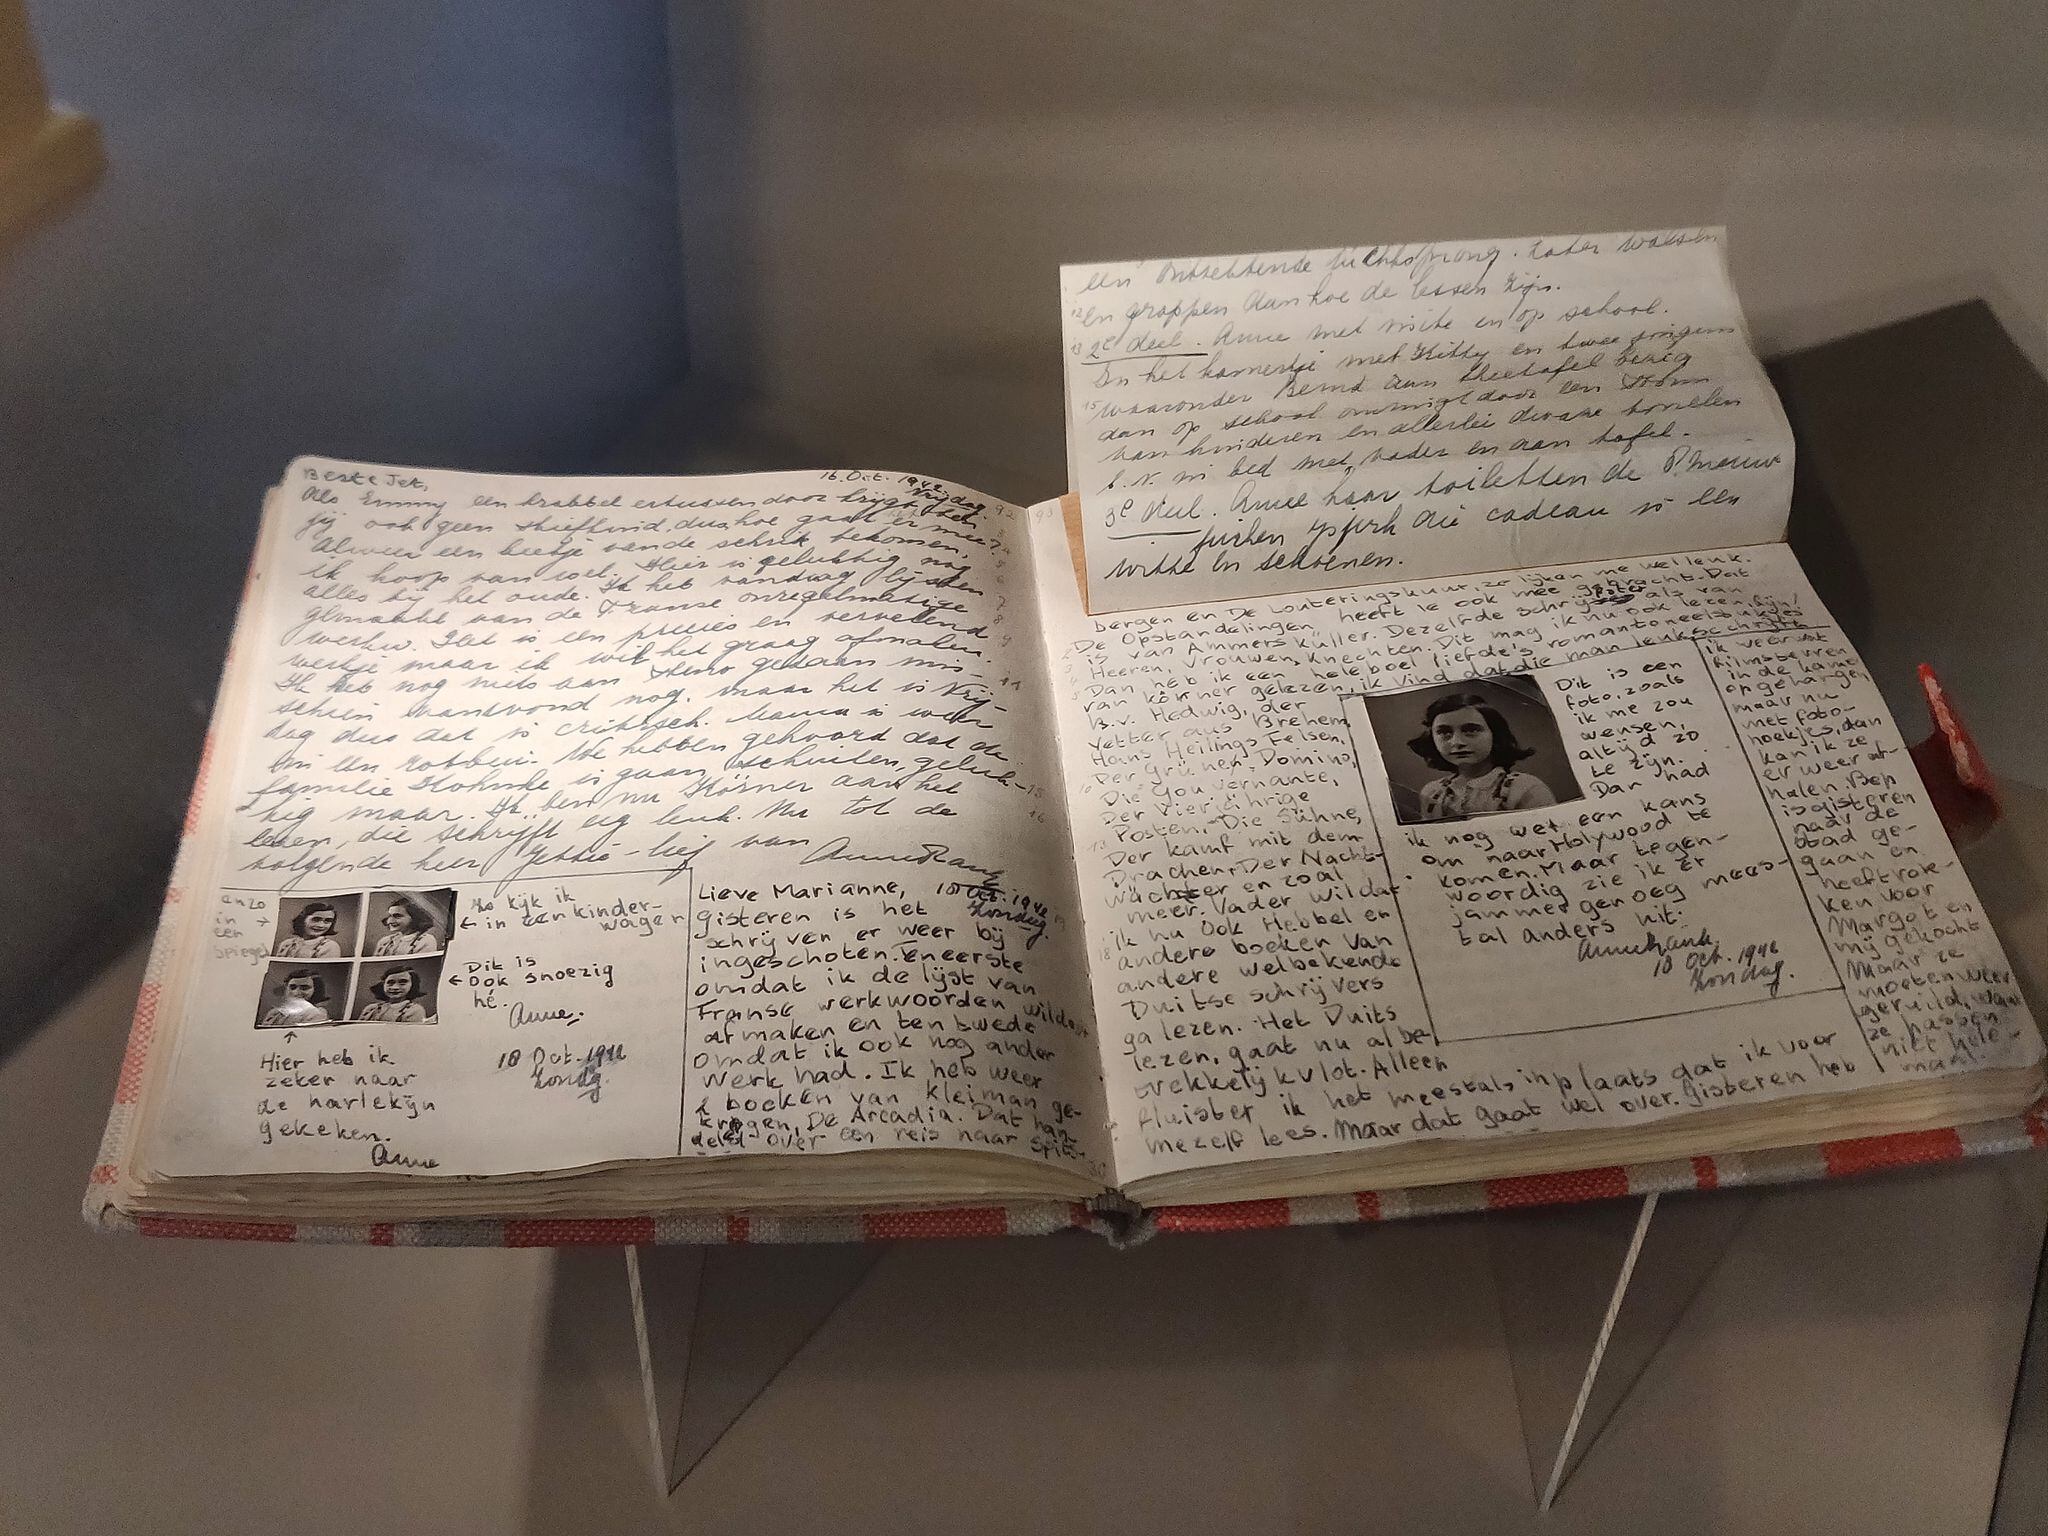 Beste Jet,
16 Oct. 1942
Vrijdag
Als Emmy een krabbel ertussen door krijgt ben
jij ook geen stiefkind, dus hoe gaat er mee?
Alweer een beetje van de schrik bekomen,
ik hoop van wel. Hier is gelukkig nog
alles bij het oude. Ik heb vandaag lijsten
gemaakt van de Franse onregelmatige
werkw. Het is een precies en vervelend
werkje maar ik wil het graag afmaken.
Ik heb nog niets aan Steno gedaan mis-
schien vanavond nog, maar het is Vrij-
dag dus dat is critisch. Mama is weer
in een rotbui. We hebben gehoord dat de
familie is gaan schuilen, geluk-
kig maar. Ik ben nu Körner aan het
lezen, die schrijft erg leuk. Nu tot de
volgende keer Jettie-lief van
Anne Frank
en zo
in
een
spiegel
Zo kijk ik
in een kinder-
wagen
Dit is
ook snoezig
hé.
Anne,
18 Oct. 1942
Zondag.
Hier heb ik
zeker naar
de harlekijn
gekeken.
Anne
Lieve Marianne,
18 Oct. 1942
Zondag.
gisteren is het
schrijven er weer bij
ingeschoten. Eneerste
omdat ik de lijst van
Franse werkwoorden wilde
afmaken en ten twede
omdat ik ook nog ander
werk had. Ik heb weer
2 boeken van Kleiman ge-
kregen, De Arcadia. Dat han-
delet over een reis naar Spits-
een ontzettende luchtsprong. Later walsen
en grappen aan hoe de lessen zijn.
2e deel. Anne met visite en op school.
In het kamertje met Kitty en twee jongens
waaronder Bernd aan theetafel bezig
dan op school omringt door een
van kinderen en allerlei dwaze tonelen
b.v. in bed met vader en aan tafel.
3e deel. Anne haar toiletten de
die cadeau is een
witte en schoenen.
bergen en De Louteringskuur, ze lijken me wel leuk.
De Opstandelingen heeft ie ook mee gebracht. Dat
is van Ammers Küller. Dezelfde schrijfster als van
Heeren, Vrouwen, Knechten. Dit mag ik nu ook lezen, fijn!
Dan heb ik een heleboel liefde's romantoneelstukjes
van Körner gelezen, ik vind dat die man leuk schrijft
B.v. Hedwig, der
Vetter aus Brehem,
Hans Heilings Felsen,
Der Grünen Domino,
Die Gouvernante,
Der Vierjährige
Posten, Die Sühne,
Der Kamf mit dem
Drachen, Der Nacht-
wächter en zoal
meer. Vader wil dat
ik nu ook Hebbel en
andere boeken van
andere welbekende
Duitse schrijvers
ga lezen. Het Duits
lezen, gaat nu al be-
trekkelijk vlot. Alleen
fluister ik het meestals inplaats dat ik voor
mezelf lees. Maar dat gaat wel over. Gisteren heb
Dit is een
foto, zoals
ik me zou
wensen,
altijd zo
te zijn.
Dan had
ik nog wel een kans
om naar Holywood te
komen. Maar tegen-
woordig zie ik er
jammer genoeg mees-
tal anders uit.
Anne Frank.
18 Oct. 1942
Zondag.
ik veer wat
filmsterren
in de kamer
opgehangen
maar nu
met foto-
hoekjes, dan
kan ik ze
er weer af-
halen. Bep
is gisteren
naar de
stad ge-
gaan en
heeft rok-
ken voor
Margot en
mij gekocht
Maar ze
moeten weer
geruild, want
ze passen
niet hele-
maal.